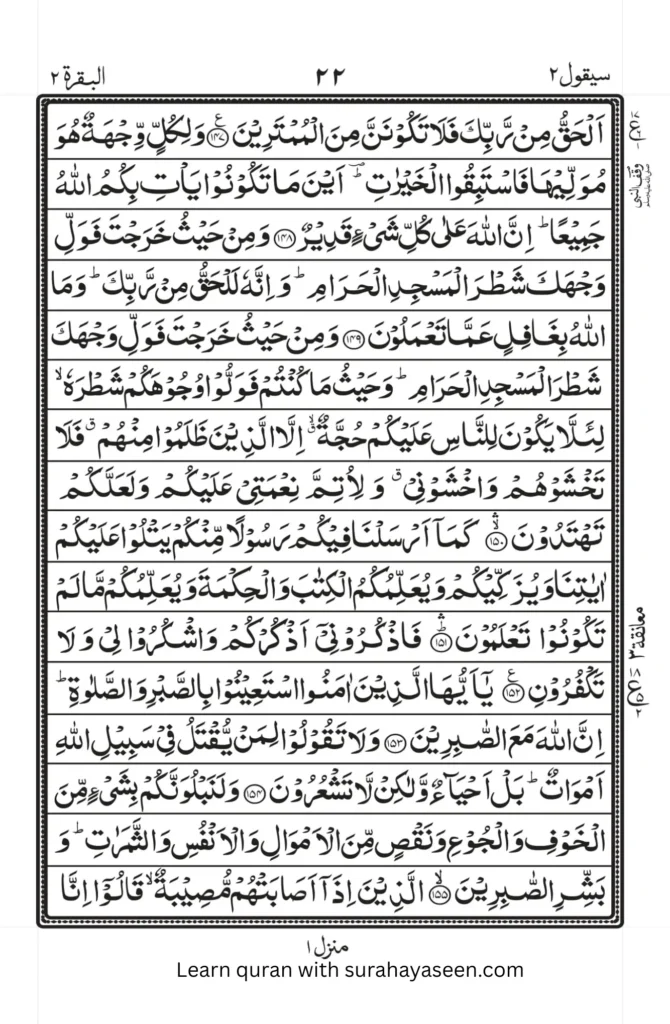 سيقول ٢ ٢٢ البقرة ٢
اَلْحَقُّ مِنْ رَّبِّكَ فَلَا تَكُوْنَنَّ مِنَ الْمُمْتَرِيْنَ ﴿۱۴۷﴾ ع وَلِكُلٍّ وِّجْهَةٌ هُوَ
مُوَلِّيْهَا فَاسْتَبِقُوا الْخَيْرٰتِ ؕ اَيْنَ مَا تَكُوْنُوْا يَاْتِ بِكُمُ اللّٰهُ
وقف النبي صلى الله عليه وسلم
جَمِيْعًا ؕ اِنَّ اللّٰهَ عَلٰى كُلِّ شَىْءٍ قَدِيْرٌ ﴿۱۴۸﴾ وَمِنْ حَيْثُ خَرَجْتَ فَوَلِّ
وَجْهَكَ شَطْرَ الْمَسْجِدِ الْحَرَامِ ؕ وَاِنَّهٗ لَلْحَقُّ مِنْ رَّبِّكَ ؕ وَمَا
اللّٰهُ بِغَافِلٍ عَمَّا تَعْمَلُوْنَ ﴿۱۴۹﴾ وَمِنْ حَيْثُ خَرَجْتَ فَوَلِّ وَجْهَكَ
شَطْرَ الْمَسْجِدِ الْحَرَامِ ؕ وَحَيْثُ مَا كُنْتُمْ فَوَلُّوْا وُجُوْهَكُمْ شَطْرَهٗ ۙ
لِئَلَّا يَكُوْنَ لِلنَّاسِ عَلَيْكُمْ حُجَّةٌ ۙۗ اِلَّا الَّذِيْنَ ظَلَمُوْا مِنْهُمْ ۗ فَلَا
تَخْشَوْهُمْ وَاخْشَوْنِىْ ۗ وَلِاُتِمَّ نِعْمَتِىْ عَلَيْكُمْ وَلَعَلَّكُمْ
تَهْتَدُوْنَ ﴿۱۵۰﴾ كَمَاۤ اَرْسَلْنَا فِيْكُمْ رَسُوْلًا مِّنْكُمْ يَتْلُوْا عَلَيْكُمْ
اٰيٰتِنَا وَيُزَكِّيْكُمْ وَيُعَلِّمُكُمُ الْكِتٰبَ وَالْحِكْمَةَ وَيُعَلِّمُكُمْ مَّا لَمْ
معانقة ٣
تَكُوْنُوْا تَعْلَمُوْنَ ﴿۱۵۱﴾ فَاذْكُرُوْنِىْۤ اَذْكُرْكُمْ وَاشْكُرُوْا لِىْ وَلَا
تَكْفُرُوْنِ ﴿۱۵۲﴾ ع يٰۤاَيُّهَا الَّذِيْنَ اٰمَنُوا اسْتَعِيْنُوْا بِالصَّبْرِ وَالصَّلٰوةِ ؕ
اِنَّ اللّٰهَ مَعَ الصّٰبِرِيْنَ ﴿۱۵۳﴾ وَلَا تَقُوْلُوْا لِمَنْ يُّقْتَلُ فِىْ سَبِيْلِ اللّٰهِ
اَمْوَاتٌ ؕ بَلْ اَحْيَآءٌ وَّلٰكِنْ لَّا تَشْعُرُوْنَ ﴿۱۵۴﴾ وَلَنَبْلُوَنَّكُمْ بِشَىْءٍ مِّنَ
الْخَوْفِ وَالْجُوْعِ وَنَقْصٍ مِّنَ الْاَمْوَالِ وَالْاَنْفُسِ وَالثَّمَرٰتِ ؕ وَ
بَشِّرِ الصّٰبِرِيْنَ ﴿۱۵۵﴾ الَّذِيْنَ اِذَاۤ اَصَابَتْهُمْ مُّصِيْبَةٌ ۙ قَالُوْۤا اِنَّا
منزل ١
Learn quran with surahayaseen.com